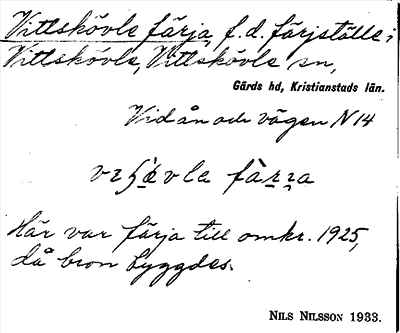 Vittskövle färja, f.d. färjställe i
Vittskövle, Vittskövle sn,
Gärds hd, Kristianstads län.
Vid ån och vägen N 14
färra
Här var färja till omkr. 1925,
då bron byggdes.
NILS NILSSON 1933.